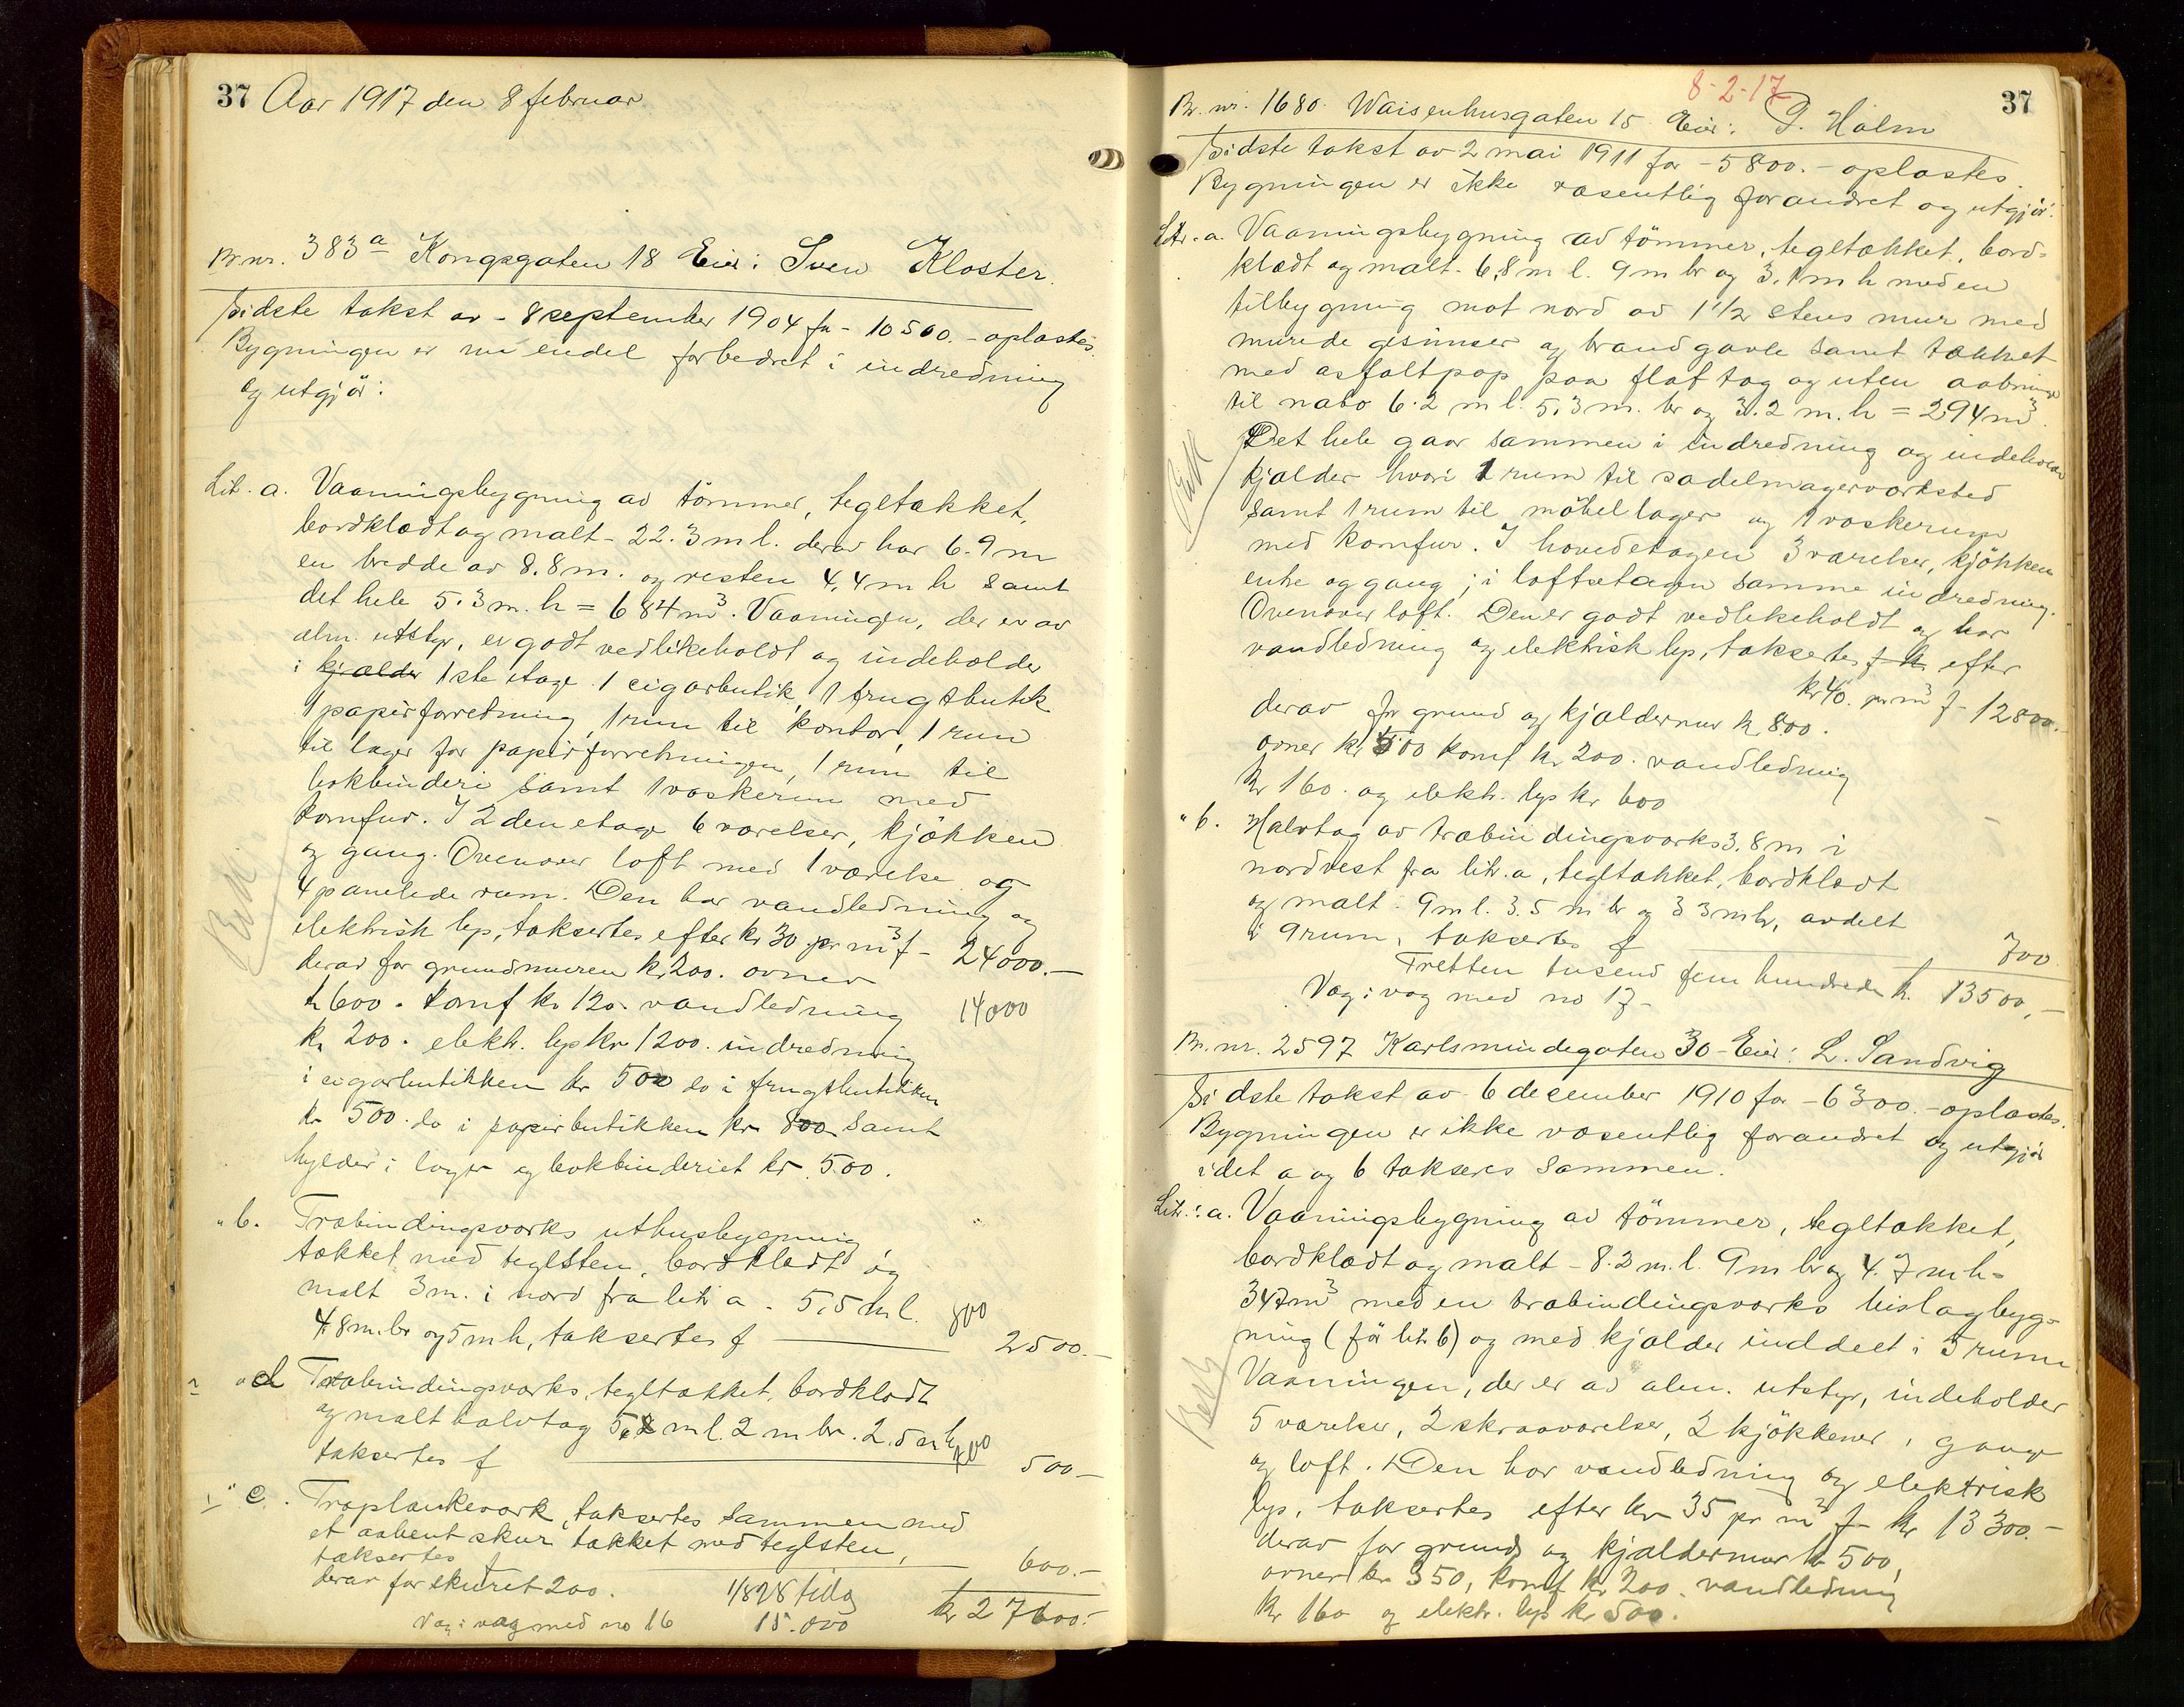 37 Aar 1917 den 8 februar
Br.nr. 383a Kongsgaten 18 Eier: Sven Kloster.
Sidste takst av - 8 september 1904 fr - 10500.- oplæstes.
Bygningen er nu endel forbedret i indredning
og utgjör:
Lit. a. Vaaningsbygning av tömmer, tegltækket,
bordklædt og malt - 22.3 m l. derav har 6.9 m
en bredde av 8.8 m. og resten 4,4 m h samt
det hele 5.3 m. h = 684 m3. Vaaningen, der er av
alm. utstyr, er godt vedlikeholdt og indeholder
i kjælder 1ste etage 1 cigarbutik, 1 frugtbutik
1 papirforretning, 1 rum til kontor, 1 rum
til lager for papirforretningen, 1 rum til
bokbinderi samt 1 vaskerum med
komfur. I 2den etage 6 værelser, kjökken
og gang. Ovenover loft med 1 værelse og
4 panelede rum. Den har vandledning og
elektrisk lys, taksertes efter kr 30 pr m3 f - 24000.-
derav for grundmuren kr 200. ovner
kr 600. komf kr 120. vandledning 14000
kr 200. elekt. lys kr 1200. indredning
i cigarbutikken kr 500 do i frugtbutikken
kr 500. do i papirbutikken kr 800 samt
hylder i lager og bokbinderiet kr 500.
" b. Træbindingsværks uthusbygning
tækket med teglsten, bordklædt og
malt 3 m. i nord fra litr a - 5,5 m l. 800
4.8 m. br og 5 m h, taksertes f 2500.-
" d Træbindingsværks, tegltækket, bordklædt
og malt halvtag 5,2 m l. 2 m br. 2.5 m h 400
taksertes f 500-
" e. Træplankeverk, taksertes sammen med
et aabent skur tækket med teglsten,
taksertes f 600.-
derav for skuret 200. 1/8 28 tillæg kr 27600.-
Vag: vag med no 16 15.000
8-2-17
37
Br. nr. 1680. Waisenhusgaten 15 Eier: P. Holm
Sidste takst av 2 mai 1911 for - 5800.- oplæstes.
Bygningen er ikke væsentlig forandret og utgjör:
Litr. a. Vaaningsbygning av tömmer, tegltækket, bord-
klædt og malt - 6,8 m l. 9 m br og 3.1 m h med en
tilbygning mot nord av 1 1/2 stens mur med
murede gesimser og brandgavle samt tækket
med asfaltpap paa flat tag og uten aabninger
til nabo 6.2 m l. 5.3 m. br og 3.2 m.h = 294 m3.
Det hele gaar sammen i indredning og indeholder
kjælder hvori 1 rum til sadelmagerværksted
samt 1 rum til möbellager og 1 vaskerum
med komfur. I hovedetagen 3 værelser, kjökken
entre og gang; i loftsetagen samme indredning.
Ovenover loft. Den er godt vedlikeholdt og har
vandledning og elektrisk lys, taksertes f kr efter
kr 40. pr m3 f - 12800.-
derav for grund og kjældermur kr 800.
ovner kr 500 komf kr 200. vandledning
kr 160. og elektr. lys kr 600
" b. Halvtag av træbindingsværks 3.8 m i
nordvest fra litr. a, tegltækket, bordklædt
og malt. 9 m l. 3.5 m br og 3 3 m h, avdelt
i 9 rum, taksertes f 700
Tretten tusend fem hundrede kr. 13500,-
Vag: vag med no 17-
Br. nr. 2597 Karlsmindegaten 30 - Eier: L. Sandvig
Sidste takst av 6 december 1910 for - 6300.- oplæstes.
Bygningen er ikke væsentlig forandret og utgjör
idet a og b takseres sammen.
Litr.: a. Vaaningsbygning av tömmer, tegltækket,
bordklædt og malt - 8.2 m. l. 9 m br og 4.7 m h =
347 m3 med en træbindingsværks bislagbyg-
ning (för litr b) og med kjælder inddeet i 5 rum
Vaaningen, der er av alm. utstyr, indeholder
5 værelser, 2 skraaværelser, 2 kjökkener, gange
og loft. Den har vandledning og elektrisk
lys, taksertes efter kr 35 pr m3 f kr 13300.-
derav for grund og kjældermur kr 500,
ovner kr 350, komf kr 200. vandledning
kr 160 og elektr. lys kr 500.